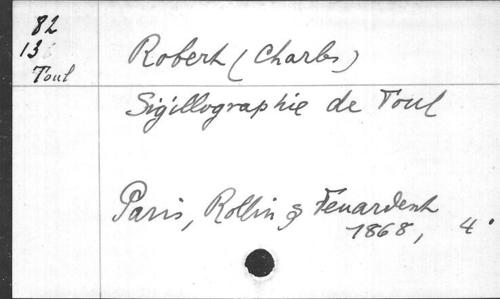 82
13
Toul
Robert (Charles)
Sigillographie de Toul
Paris, Rollin & Feuardent
1868, 4°